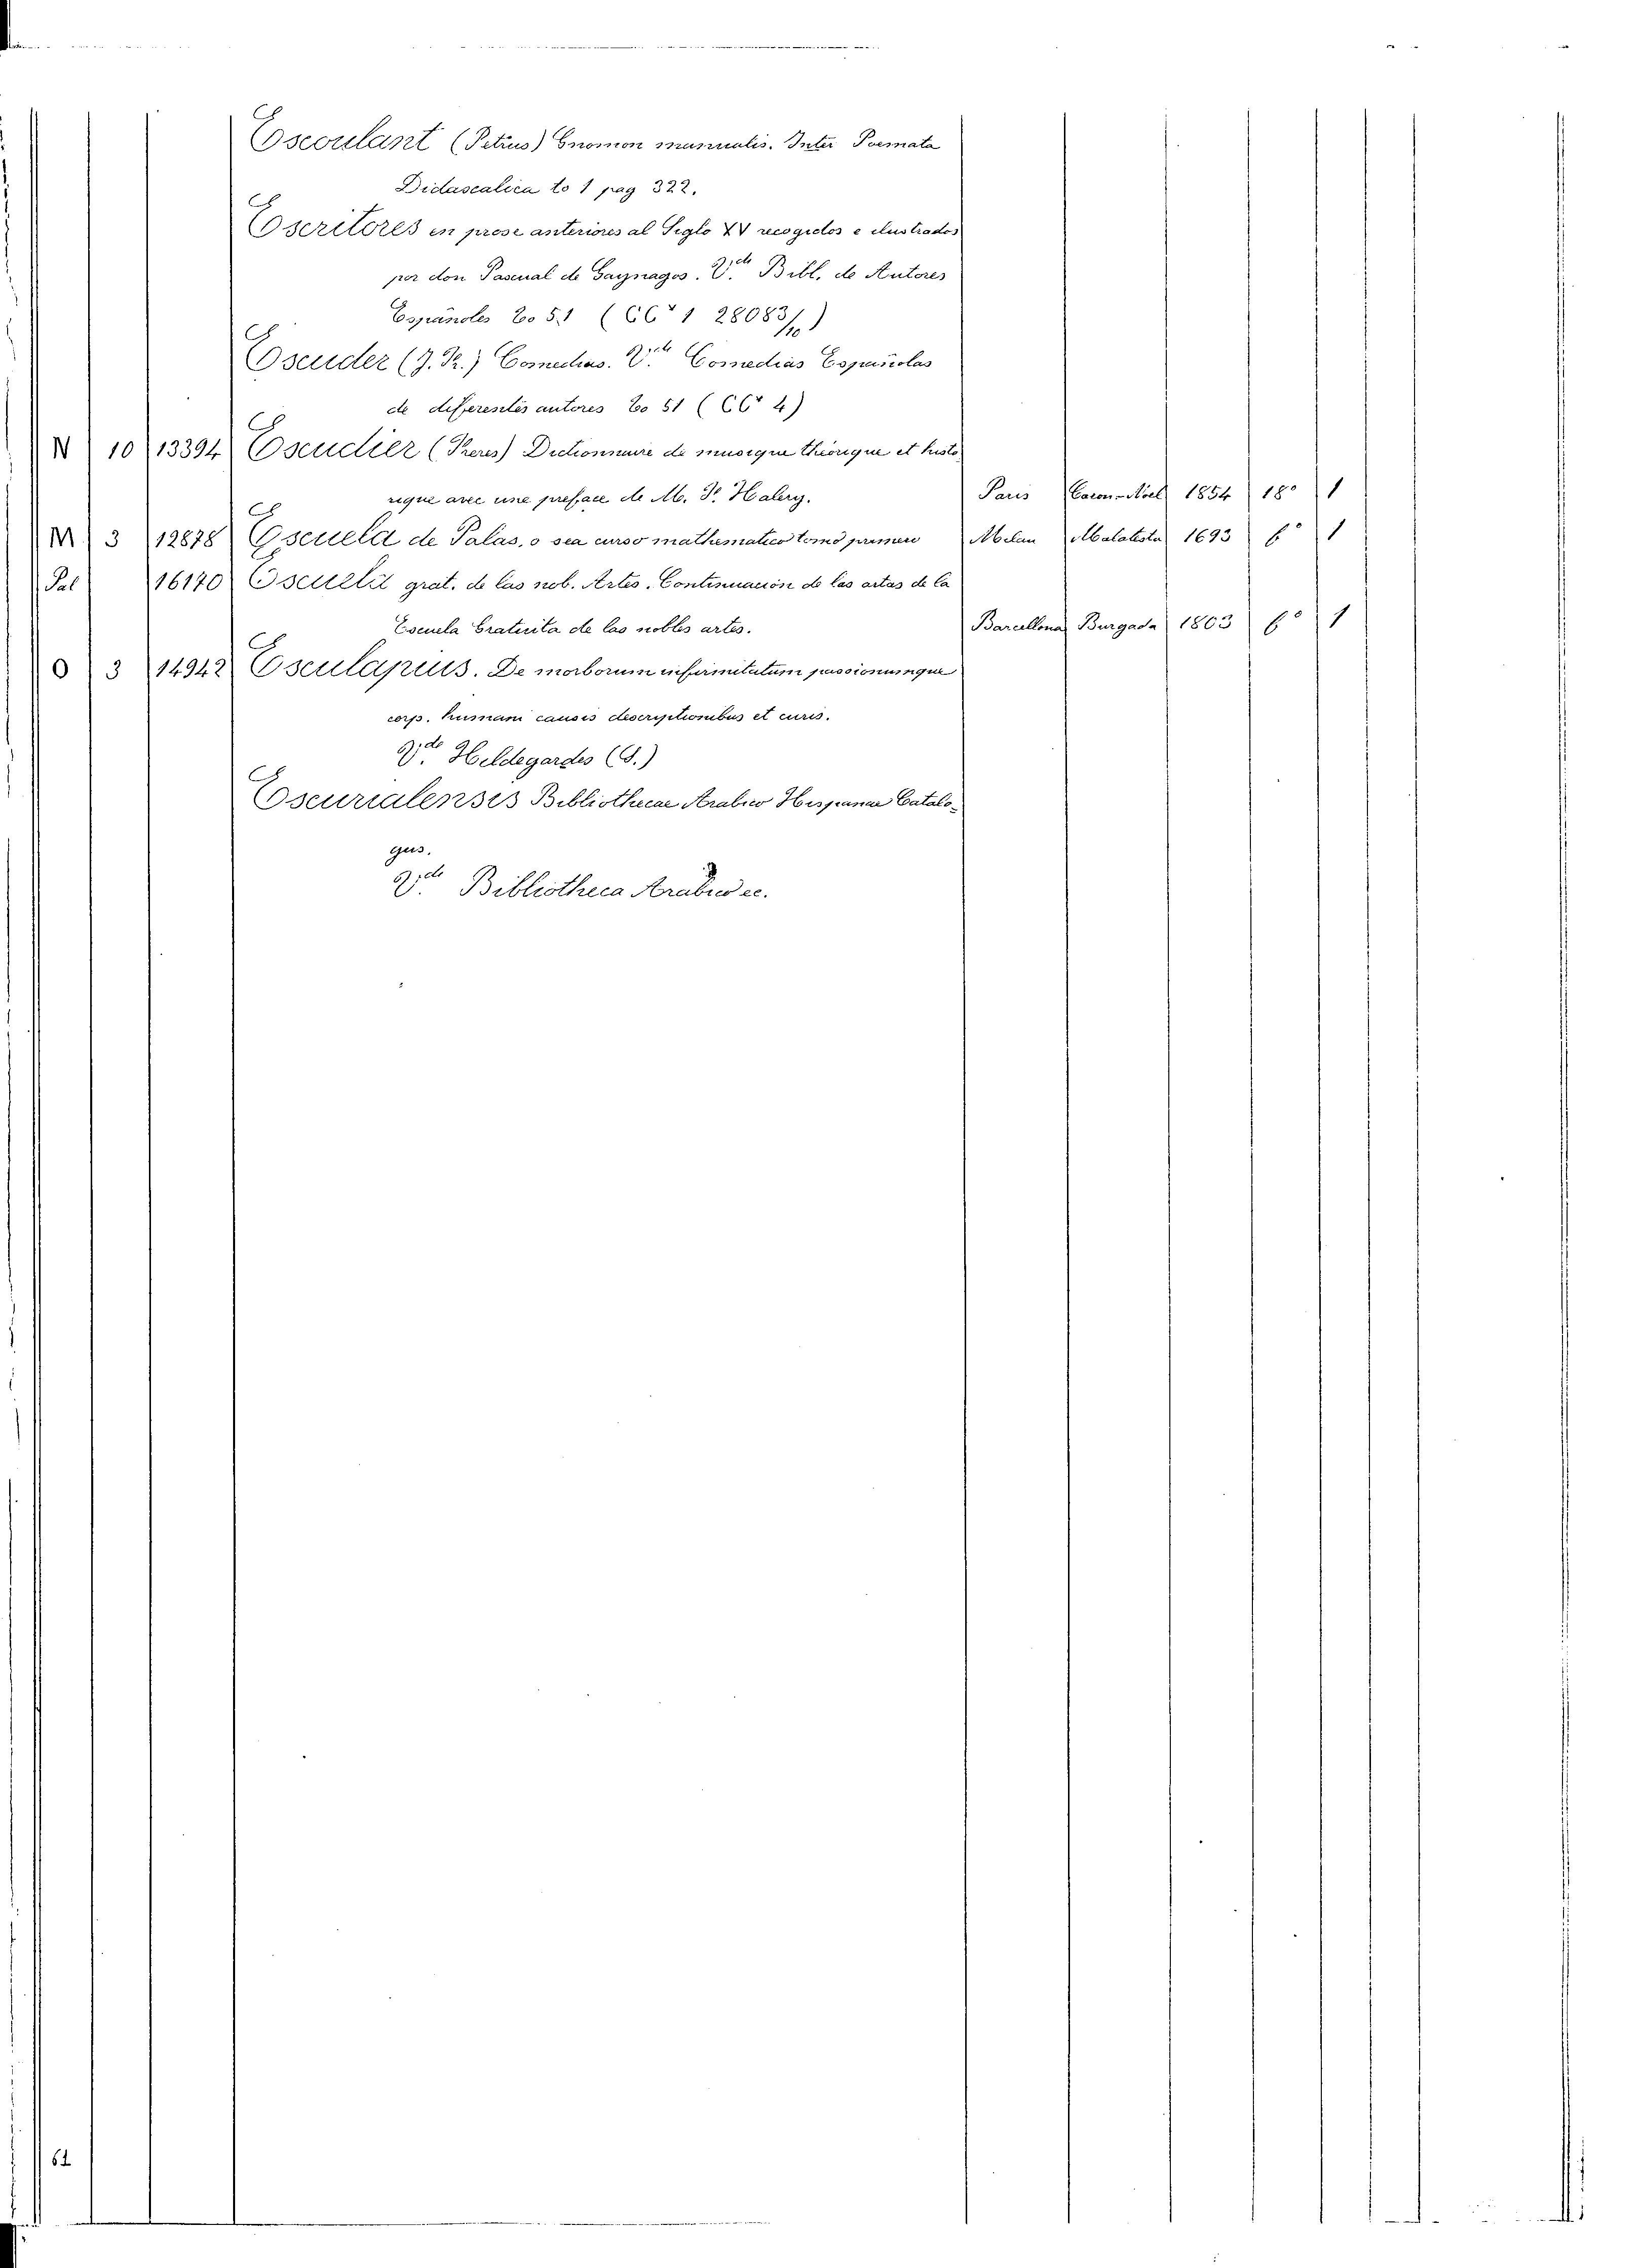 Escoulant (Petrus) Gnomon manualis. Inter Poemata
Didascalica to 1 pag 322.
Escritores en prose anteriores al Siglo XV recogidos e ilustrados
por don Pascual de Gaynagos. V.de Bibl. de Autores
Españoles to 51 (CC 1 28083/10)
Escuder (J. F.) Comedias. V.de Comedias Españolas
de differentes autores to 51 (CC 4)
N 10 13394 Escudier (Freres) Dictionnaire de musique théorique et histo
rique avec une preface de M. F. Halevy. Paris Caron-Noel 1854 18° 1
M 3 12878 Escuela de Palas, o sea curso mathematico tomo primero Milan Malatesta 1693 6° 1
Pal 16170 Escuela grat. de las nob. Artes. Continuación de las actas de la
Escuela Gratuita de las nobles artes. Barcellona Burgada 1803 6° 1
O 3 14942 Esculapius. De morborum infirmitatum passionumque
corp. humani causis descriptionibus et curis.
V.de Heldegardes (S.)
Escurialensis Bibliothecae Arabico Hispanae Catalo-
gus.
V.de Bibliotheca Arabico ec.
61